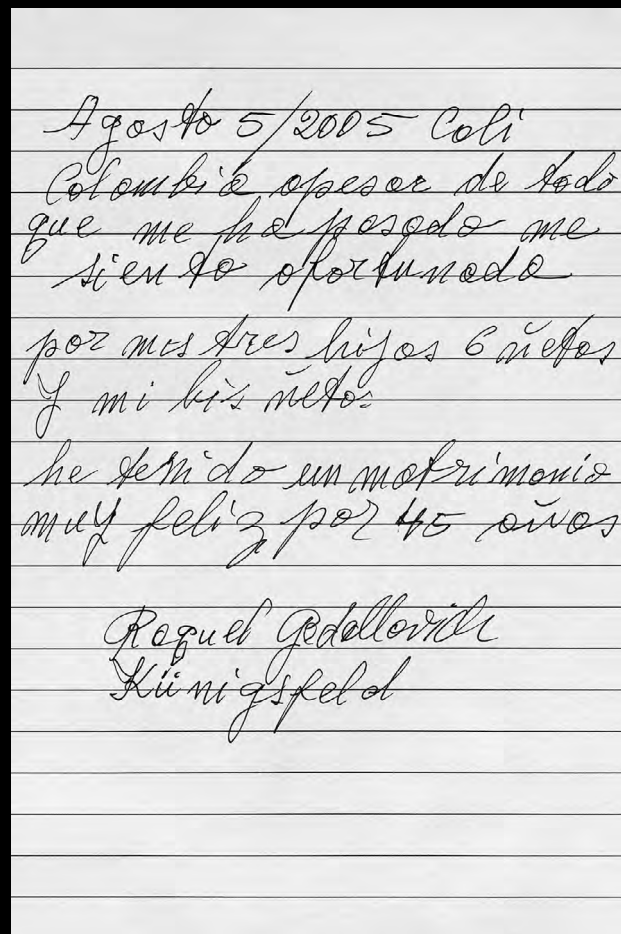 Agosto 5/2005 Cali
Colombia apesar de todo
que me ha pasado me
siento afortunada
por mis tres hijos 6 ñetos
Y mi bis ñeto.
he tenido un matrimonio
muy feliz por 45 años
Raquel Gedallovich
Künigsfeld